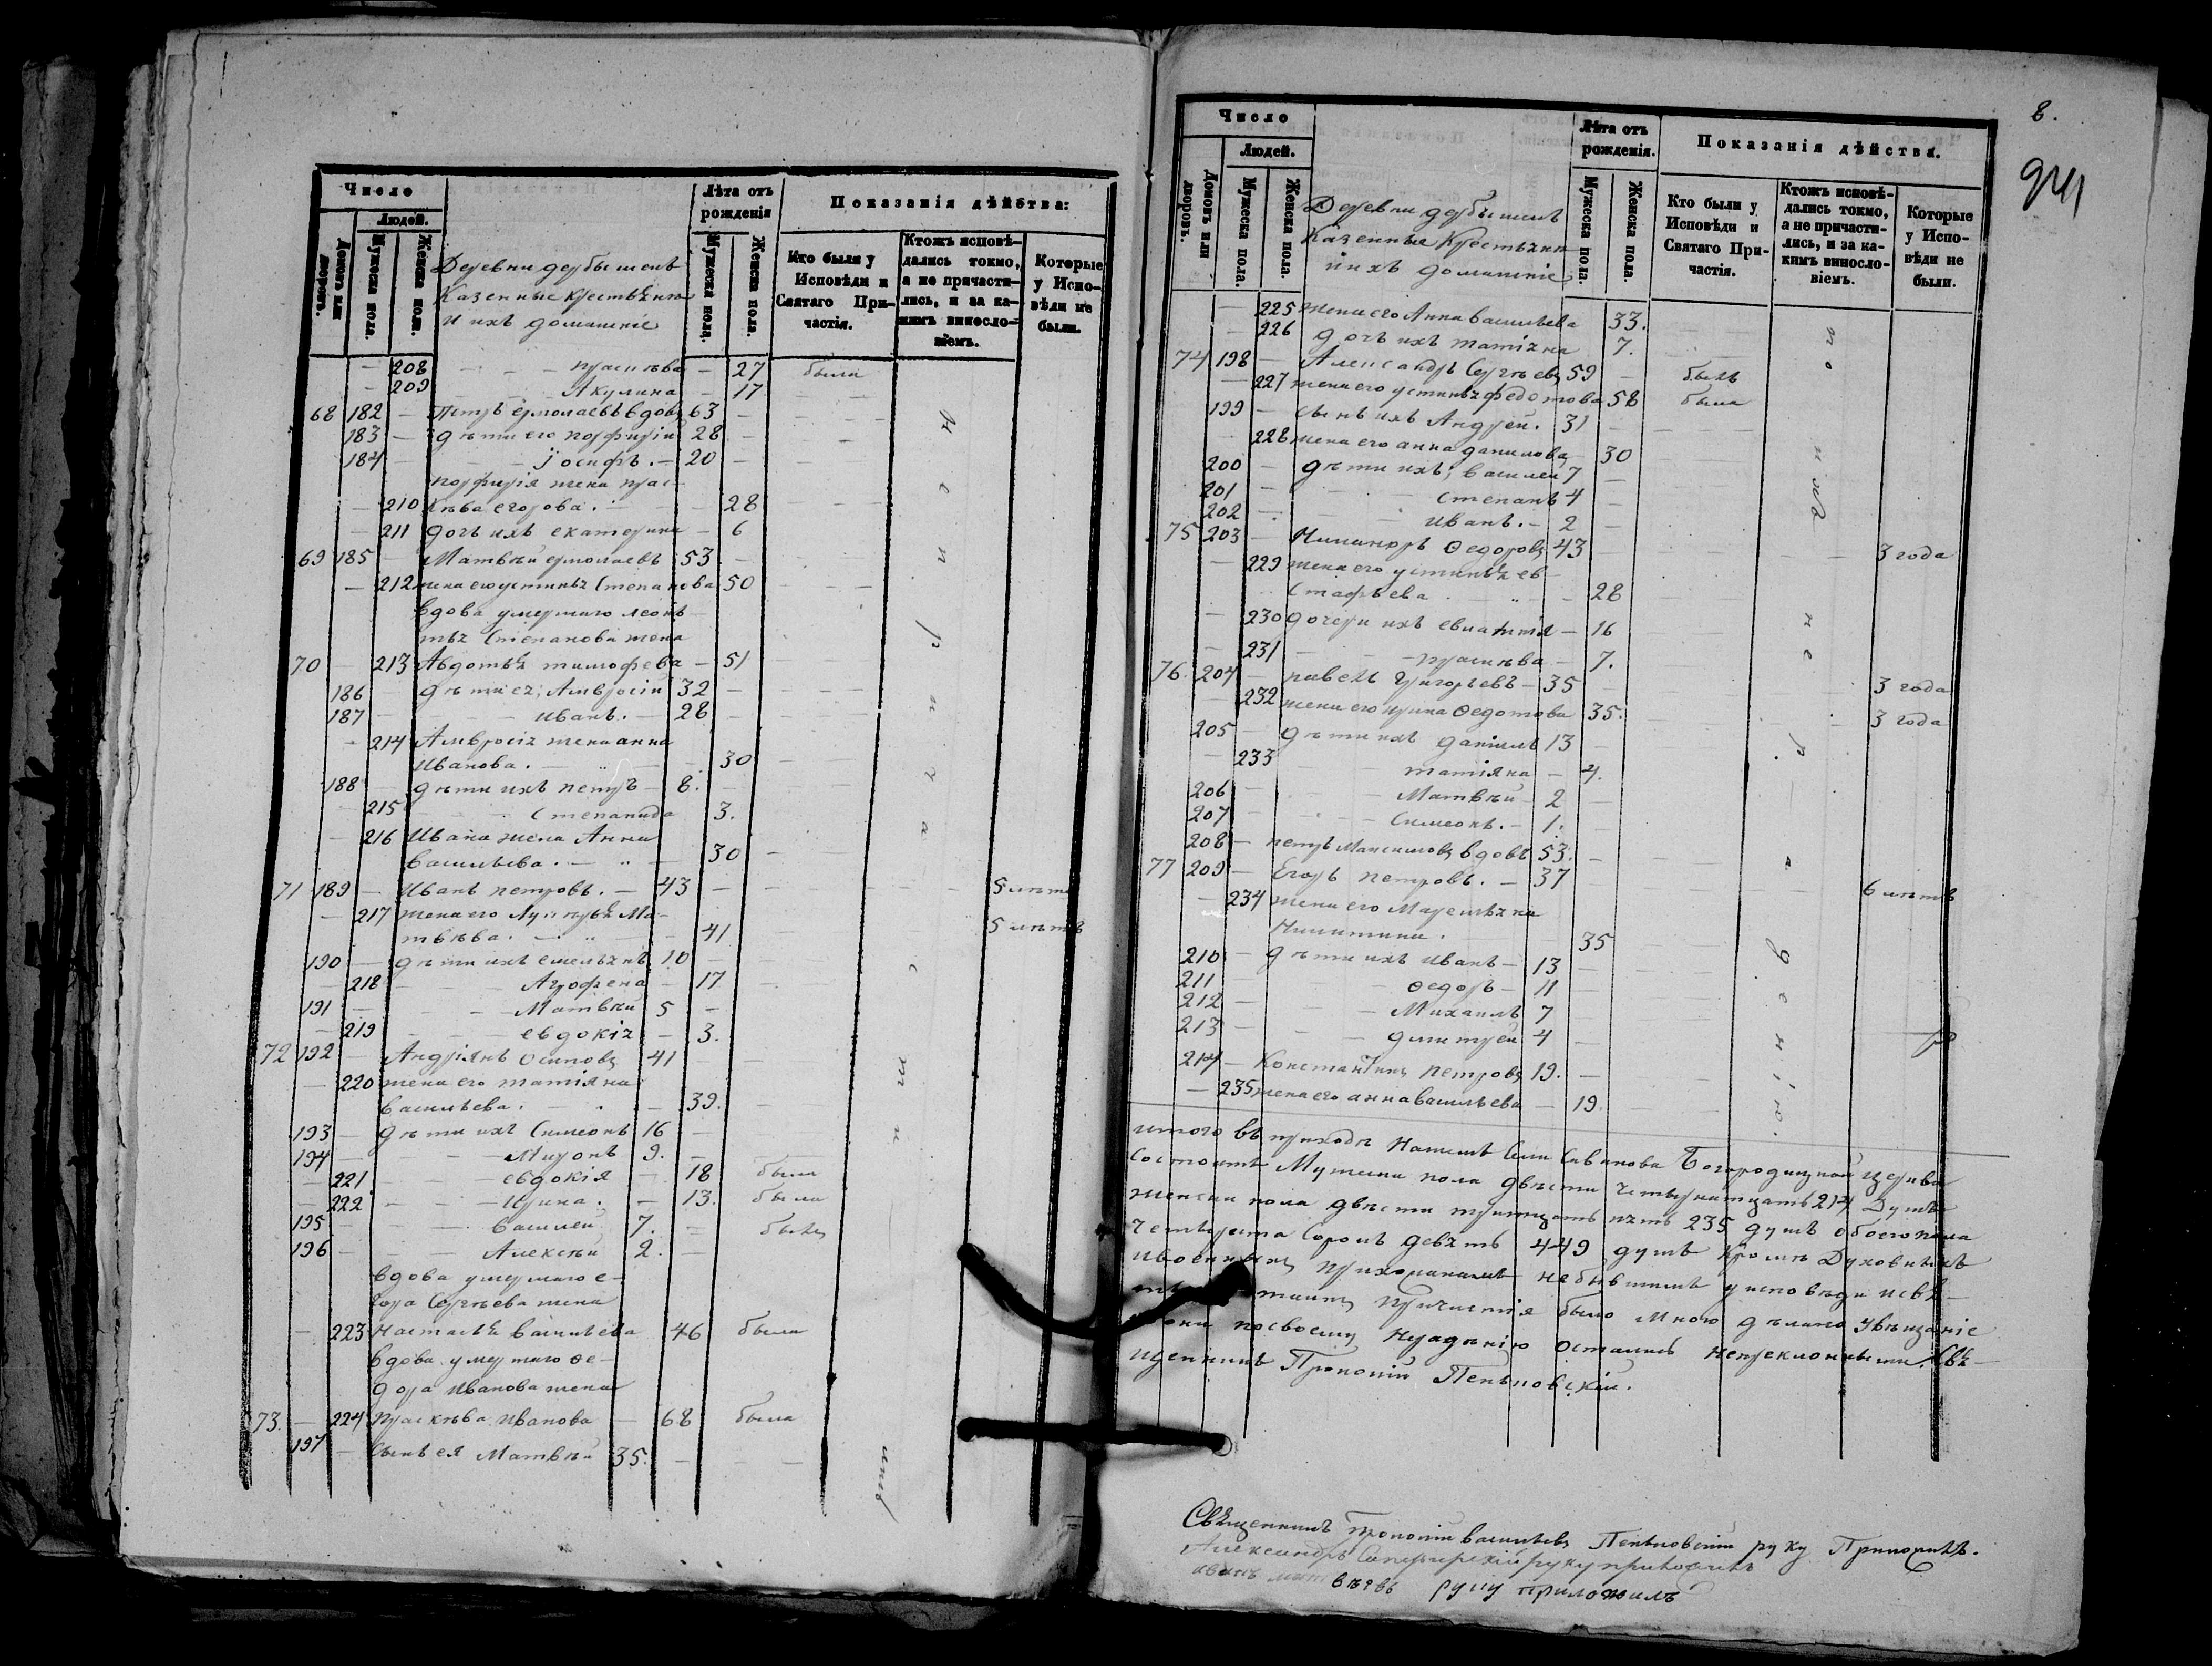 Число
Людей.
Домовъ или дворовъ.
Мужеска пола.
Женска пола.
Деревни дербышевъ
Казенные крестьяне
и ихъ домашніе
Лѣта отъ рожденія
Мужеска пола.
Женска пола.
Показанія дѣйства:
Кто были у Исповѣди и Святаго Причастія.
Ктожъ исповѣдались токмо, а не причастились, и за какимъ винословіемъ.
Которые у Исповѣди не были.
— 208 — — — 27 была
— 209 — — Акулина — 17
68 182 — Петръ ермолаевъ вдовъ 63 —
183 — дѣти его порфирій 28 —
184 — — Іосифъ. — 20 —
порфирія жена прас-
— 210 кѣва егорова. — 28
— 211 дочь ихъ екатерина — 6
69 185 Матвѣй ермолаевъ 53 —
— 212 жена его устинья Степанова 50
вдова умершаго леонъ-
тья Степанова жена
70 — 213 Авдотья тимофева — 51
186 — дѣти ея; Амвросій 32 —
187 — — иванъ. — 28 —
— 214 Амвросія жена анна
иванова. — 30
188 — дѣти ихъ петръ — 8. —
215 — Степанида 3.
— 216 Ивана жена Анна
васильева. — 30
71 189 — Иванъ петровъ. — 43 — 5 лѣтъ
— 217 жена его Лукерья Ма-
твѣева. — 41 5 лѣтъ
190 — дѣти ихъ емельянъ 10 —
— 218 — Агрофена — 17
191 — — Матвѣй 5 —
— 219 — евдокія — 3.
72 192 — Андріянъ осиповъ 41 —
— 220 жена его татіяна
васильева. — 39. —
193 — дѣти ихъ Симеонъ 16 —
194 — — Миронъ 9. —
— 221 — евдокія — 18 была
— 222 — Ирина. — 13. была
195 — — василей 7. — былъ
196 — — Алексѣй 2. —
вдова умершаго е-
гора Сергѣева жена
— 223 Настасья васильева 46 была
вдова умершаго ѳе-
дора иванова жена
73. — 224 праскѣва иванова — 68 была
197 — сынъ ея Матвѣй 35. —
8.
Число
Людей.
Домовъ или дворовъ.
Мужеска пола.
Женска пола.
Деревни дербышевъ
Казенные Крестьяне
и ихъ домашніе
Лѣта отъ рожденія.
Мужеска пола.
Женска пола.
Показанія дѣйства.
Кто были у Исповѣди и Святаго Причастія.
Ктожъ исповѣдались токмо, а не причастились, и за какимъ винословіемъ.
Которые у Исповѣди не были.
— 225 жена его Анна васильева 33.
— 226 дочь ихъ татіяна 7.
74 198 — Александръ Сергѣевъ 59 — былъ
— 227 жена его устинья федотова 58 была
199 — сынъ ихъ Андрей. 31 —
— 228 жена его анна данилова 30
200 — дѣти ихъ; василей 7 —
201 — — Степанъ 4 —
202 — — иванъ. — 2 —
75 203 — Никаноръ ѳедоровъ 43 3 года
— 229 жена его устинья ев-
стафьева. — 28
— 230 дочери ихъ — 16
— 231 — — 7.
76. 204 — павелъ григорьевъ — 35 — 3 года
— 232 жена его ирина ѳедотова 35. 3 года
205 — дѣти ихъ даніилъ 13 —
— 233 татіяна — 4.
206 — — Матвѣй — 2 —
207 — — Симеонъ. — 1. —
208 — петръ Максимовъ вдовъ 53. —
77 209 — Егоръ петровъ. — 37 6 лѣтъ
— 234 жена его Маремьяна
Никитина. 35
210 — дѣти ихъ иванъ — 13 —
211 — ѳедоръ — 11 —
212 — — Михаилъ 7 —
213 — — дмитрей 4 —
214 — Константинъ петровъ 19. —
— 235 жена его анна васильева — 19.
итого въ приходѣ нашемъ Села Богородицкой церкви
Состоитъ Мужеска пола двѣсти четырнатцать 214 душъ
женска пола двѣсти тритцать пять 235 душъ обоего пола
четыреста Сорокъ девять 449 душъ кромѣ духовныхъ
и военныхъ прихожанамъ не бывшимъ у исповѣди и свя-
таинъ причастія было мною дѣлано увѣщаніе
они по своему нерадѣнію остались непреклонными Свя-
щенникъ Прокопій
Священникъ Прокопій васильевъ руку Приложилъ.
Александръ руку приложилъ
иванъ руку приложилъ